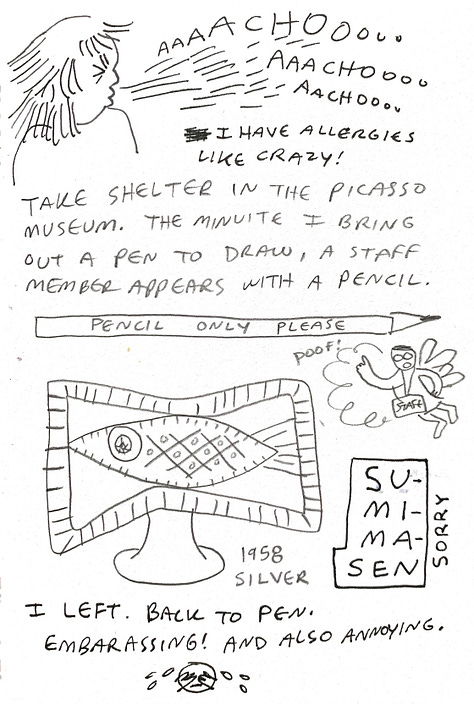 AAAAACHOOooo..
AAACHOOOoo
AACHOOoo..
I HAVE ALLERGIES
LIKE CRAZY!
TAKE SHELTER IN THE PICASSO
MUSEUM. THE MINUITE I BRING
OUT A PEN TO DRAW, A STAFF
MEMBER APPEARS WITH A PENCIL.
PENCIL ONLY PLEASE
POOF!
STAFF
SU-
MI-
MA-
SEN
SORRY
1958
SILVER
I LEFT. BACK TO PEN.
EMBARASSING! AND ALSO ANNOYING.